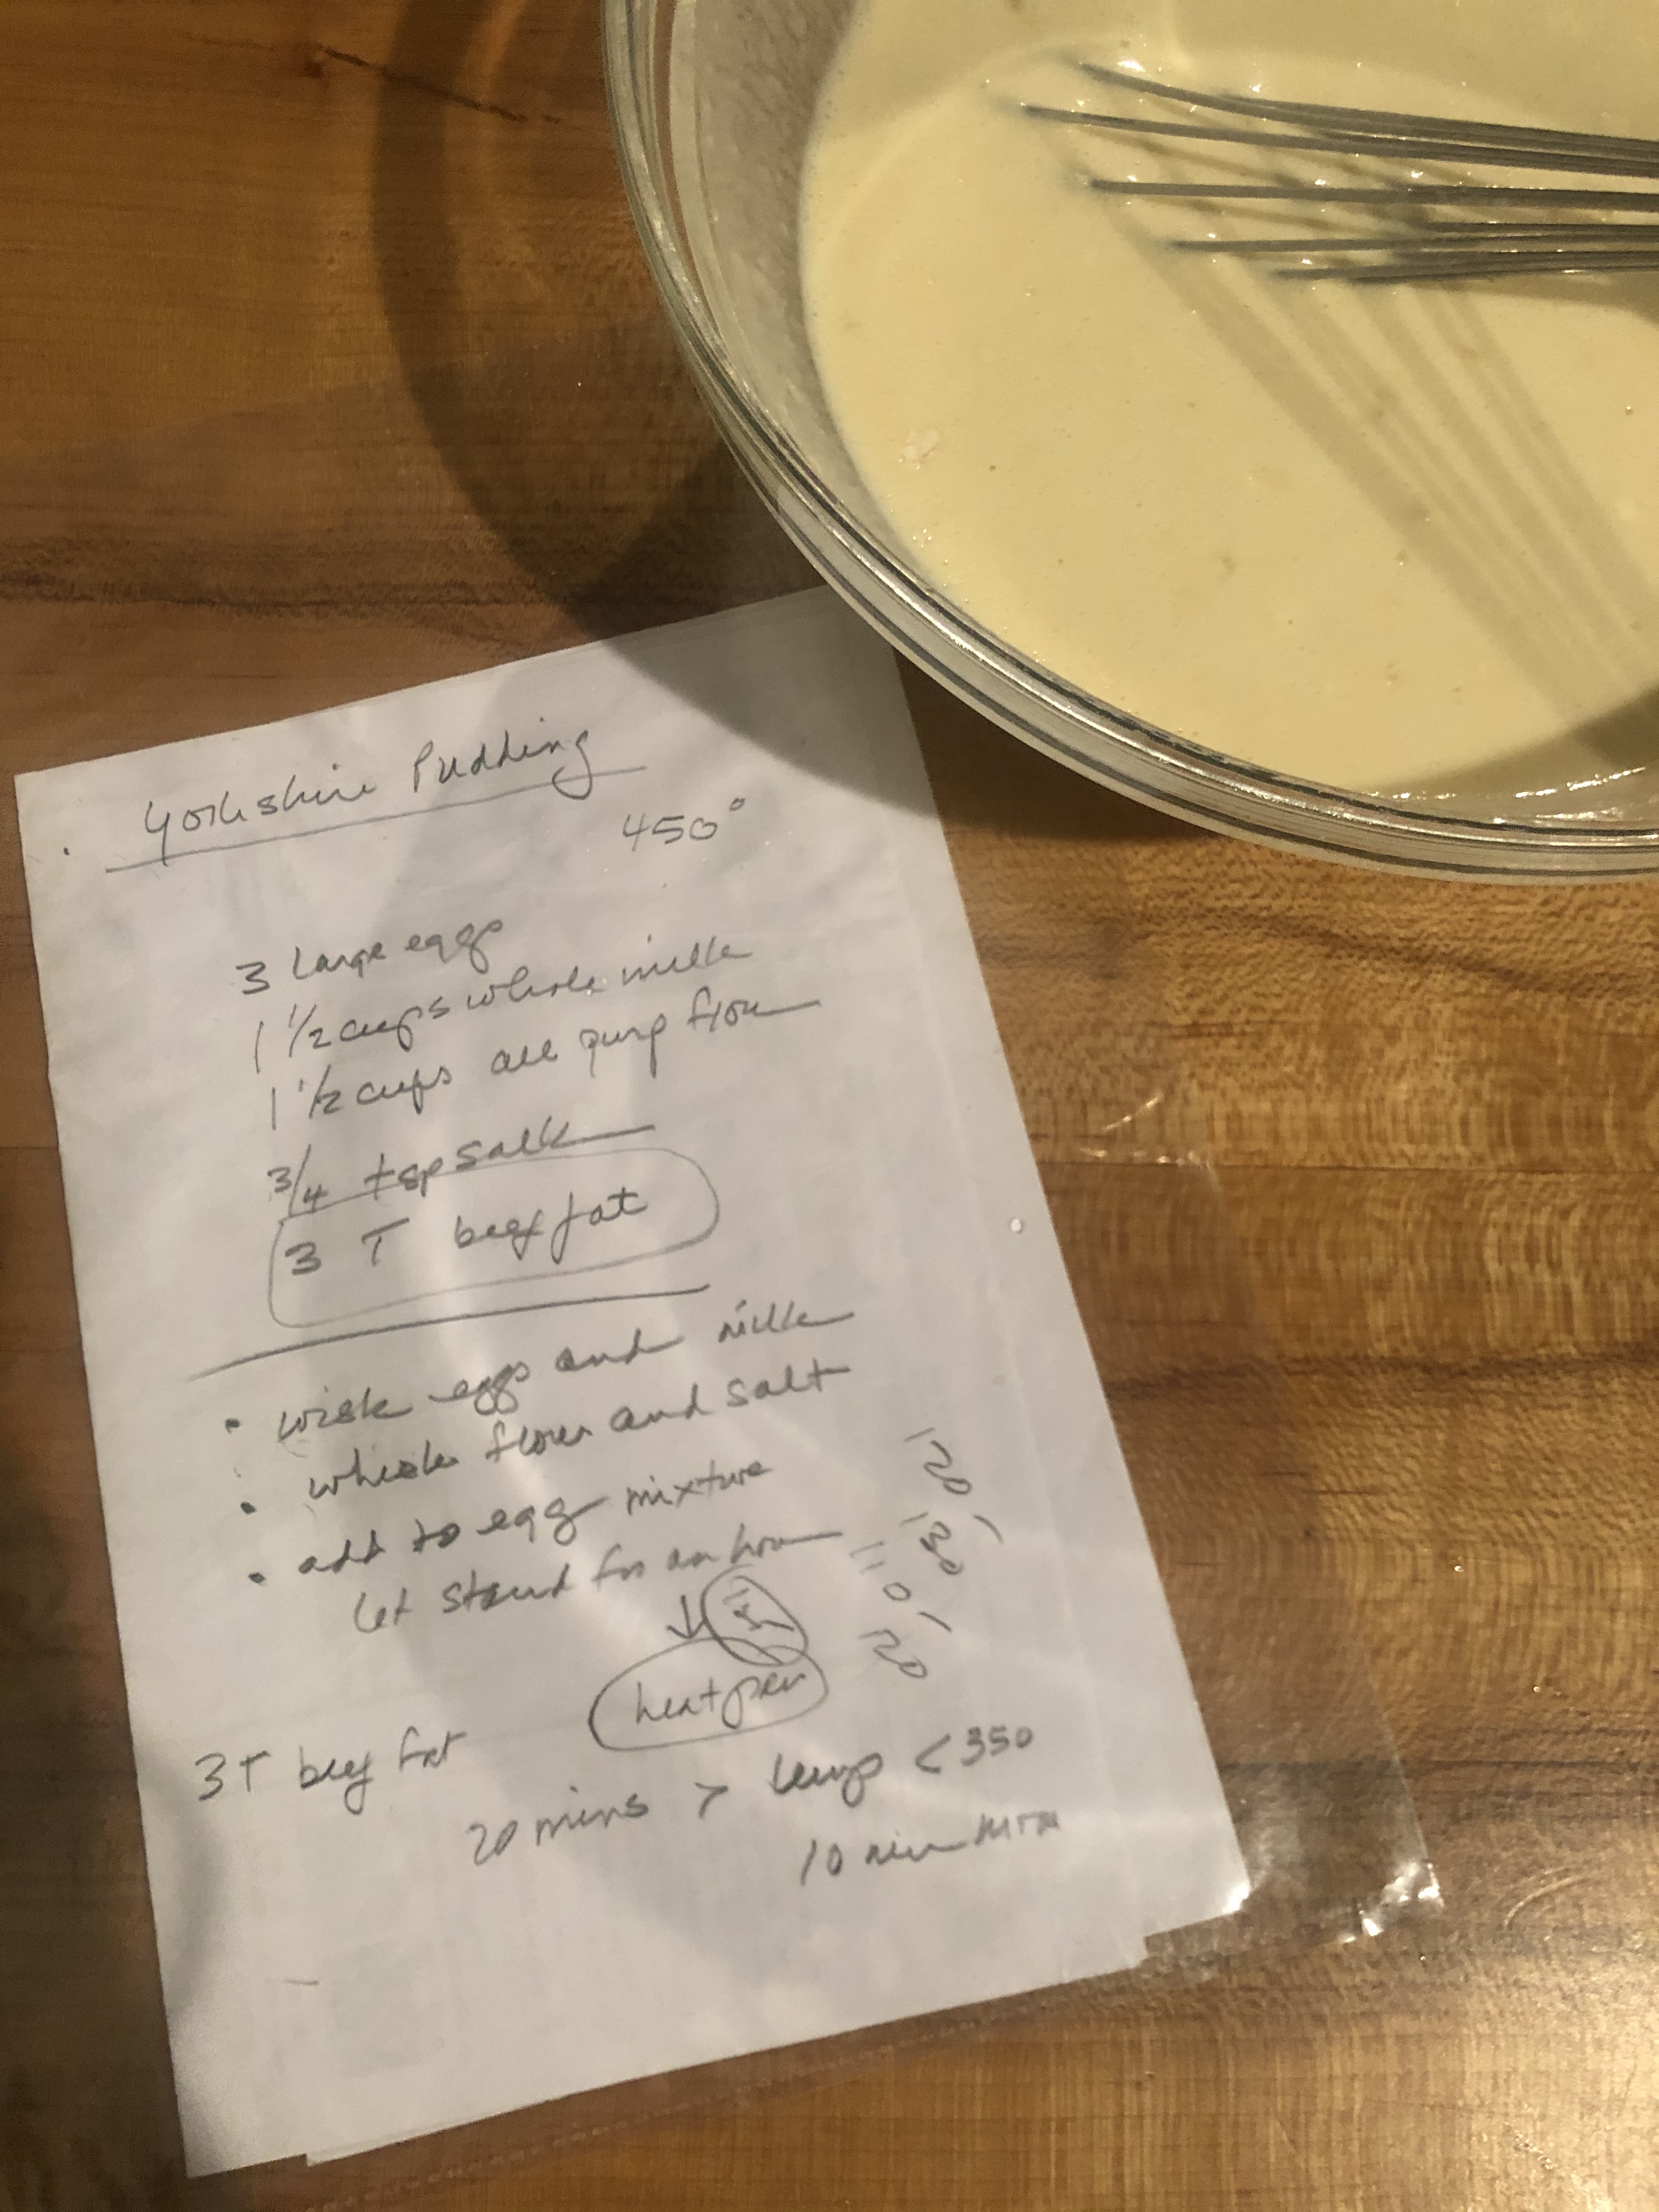 Yorkshire Pudding
450°
3 Large eggs
1 1/2 cups whole milk
1 1/2 cups all purp flour
3/4 tsp salt
3 T beef fat
• wisk eggs and milk
• whisk flour and salt
• add to egg mixture
let stand for an hour
↓
heat pan
120
130
110
120
3T beef fat
20 mins > temp < 350
10 min